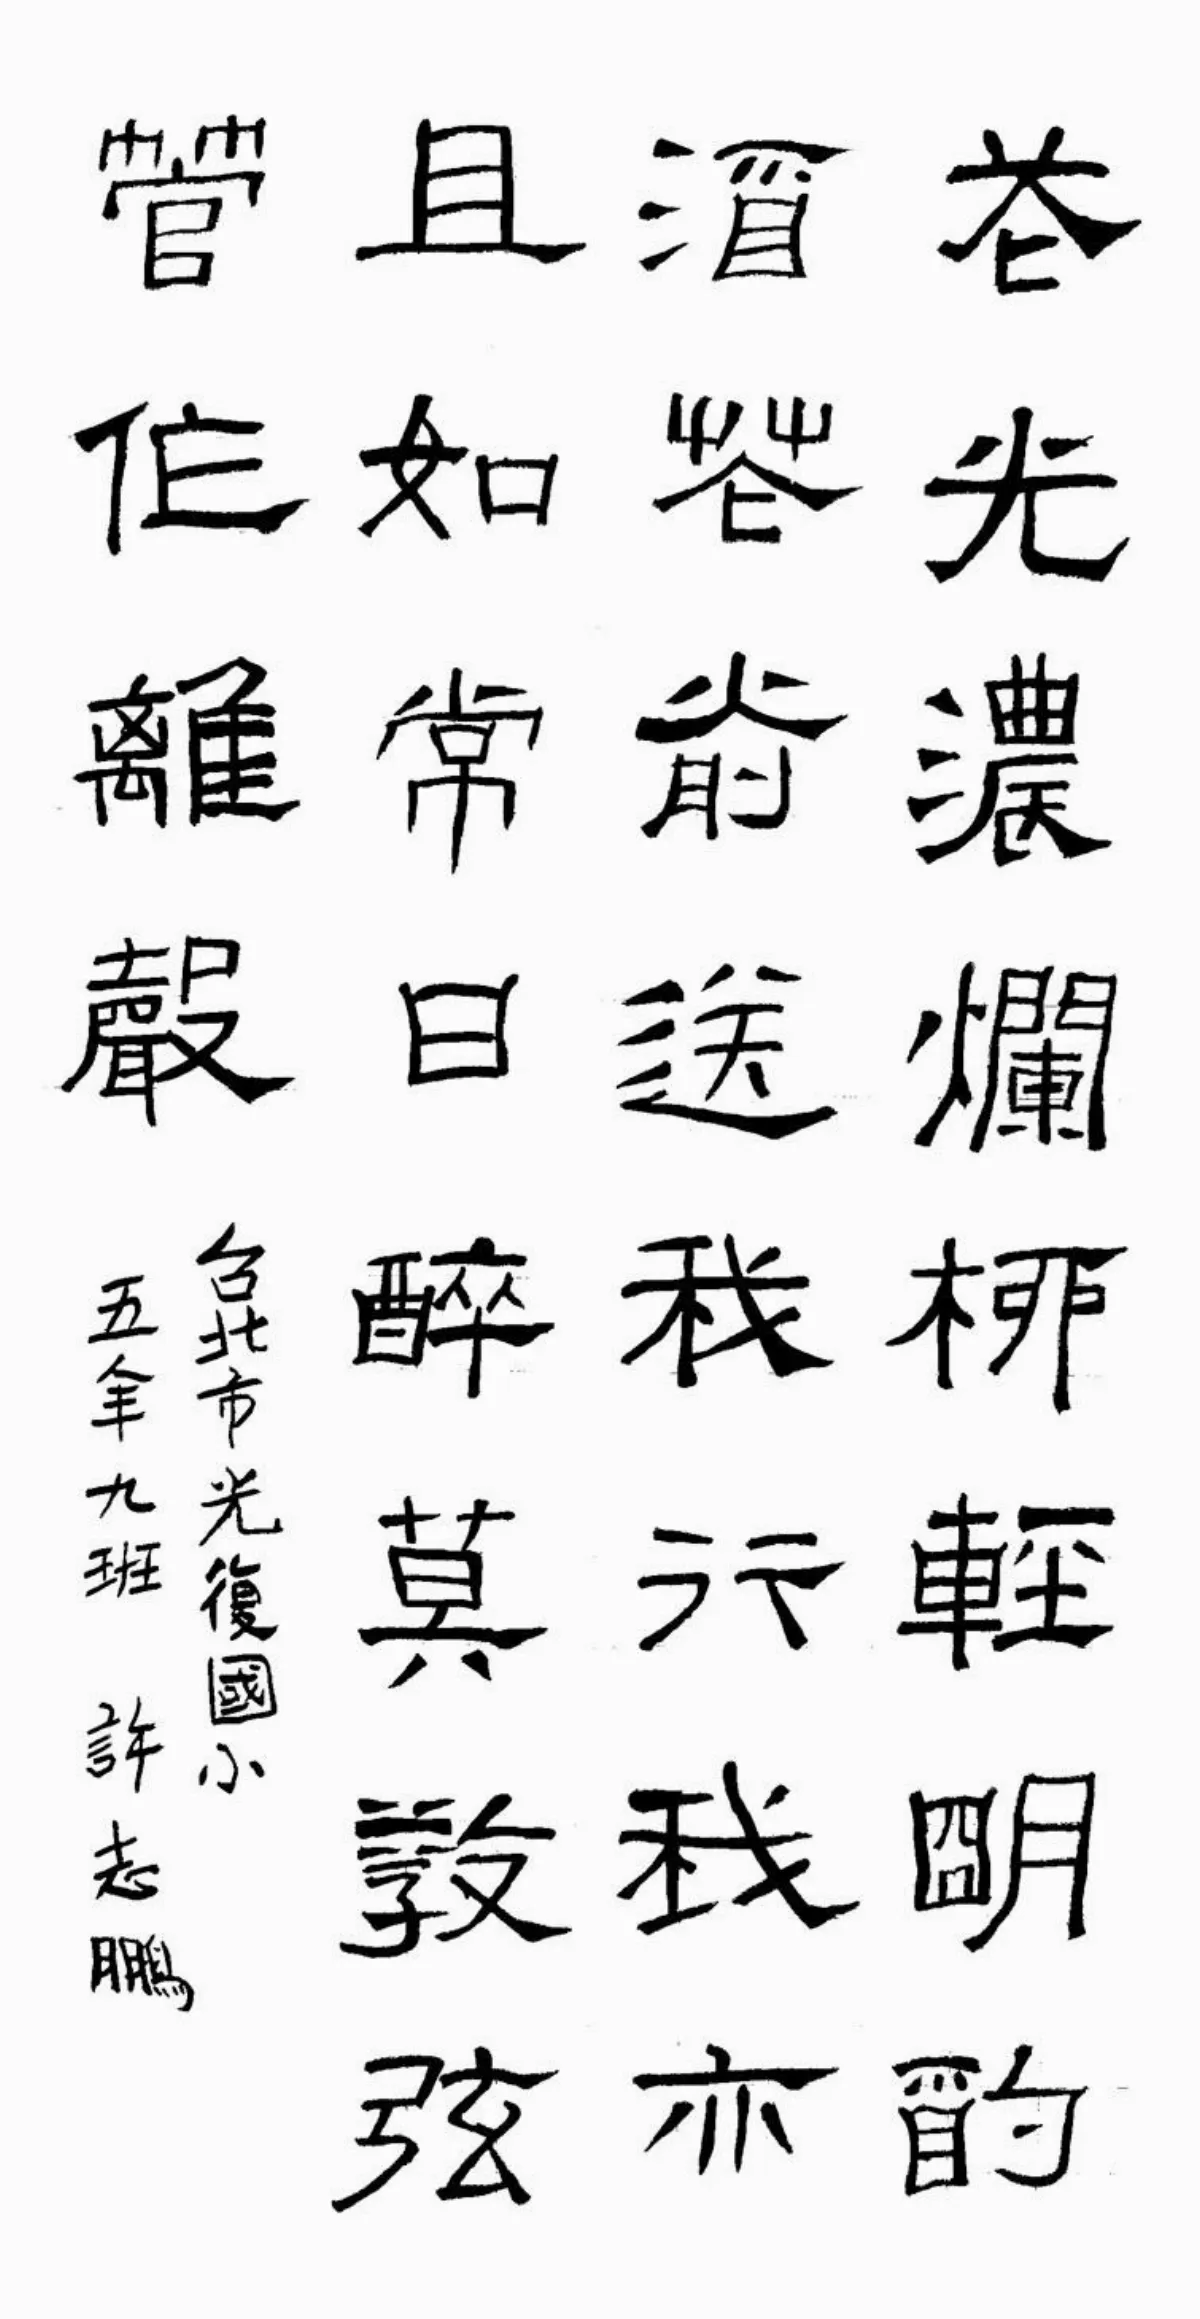 花光濃爛柳輕明酌
酒花前送我行我亦
且如常日醉莫教弦
管作離聲
台北市光復國小
五年九班 許志鵬